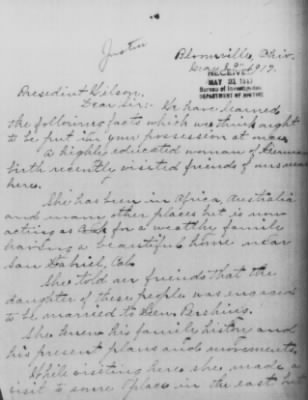 Justice
Bloomville, Ohio.
May 19th 1917.
RECEIVED
MAY 21 1917
Bureau of Investigation
DEPARTMENT OF JUSTICE
President Wilson,
Dear Sir:- We have learned
the following facts which we think ought
to be put in your possession at once.
A highly educated woman of German
birth recently visited friends of
here.
She has been in Africa, Australia
and many other places but is now
acting as Cook for a wealthy family
having a beautiful home near
San Gabriel, Cal.
She told our friends that the
daughter of these people was engaged
to be married to Gen. Pershing.
She knew his family history and
his present plans and movements.
While visiting here she made a
visit to some place in the east